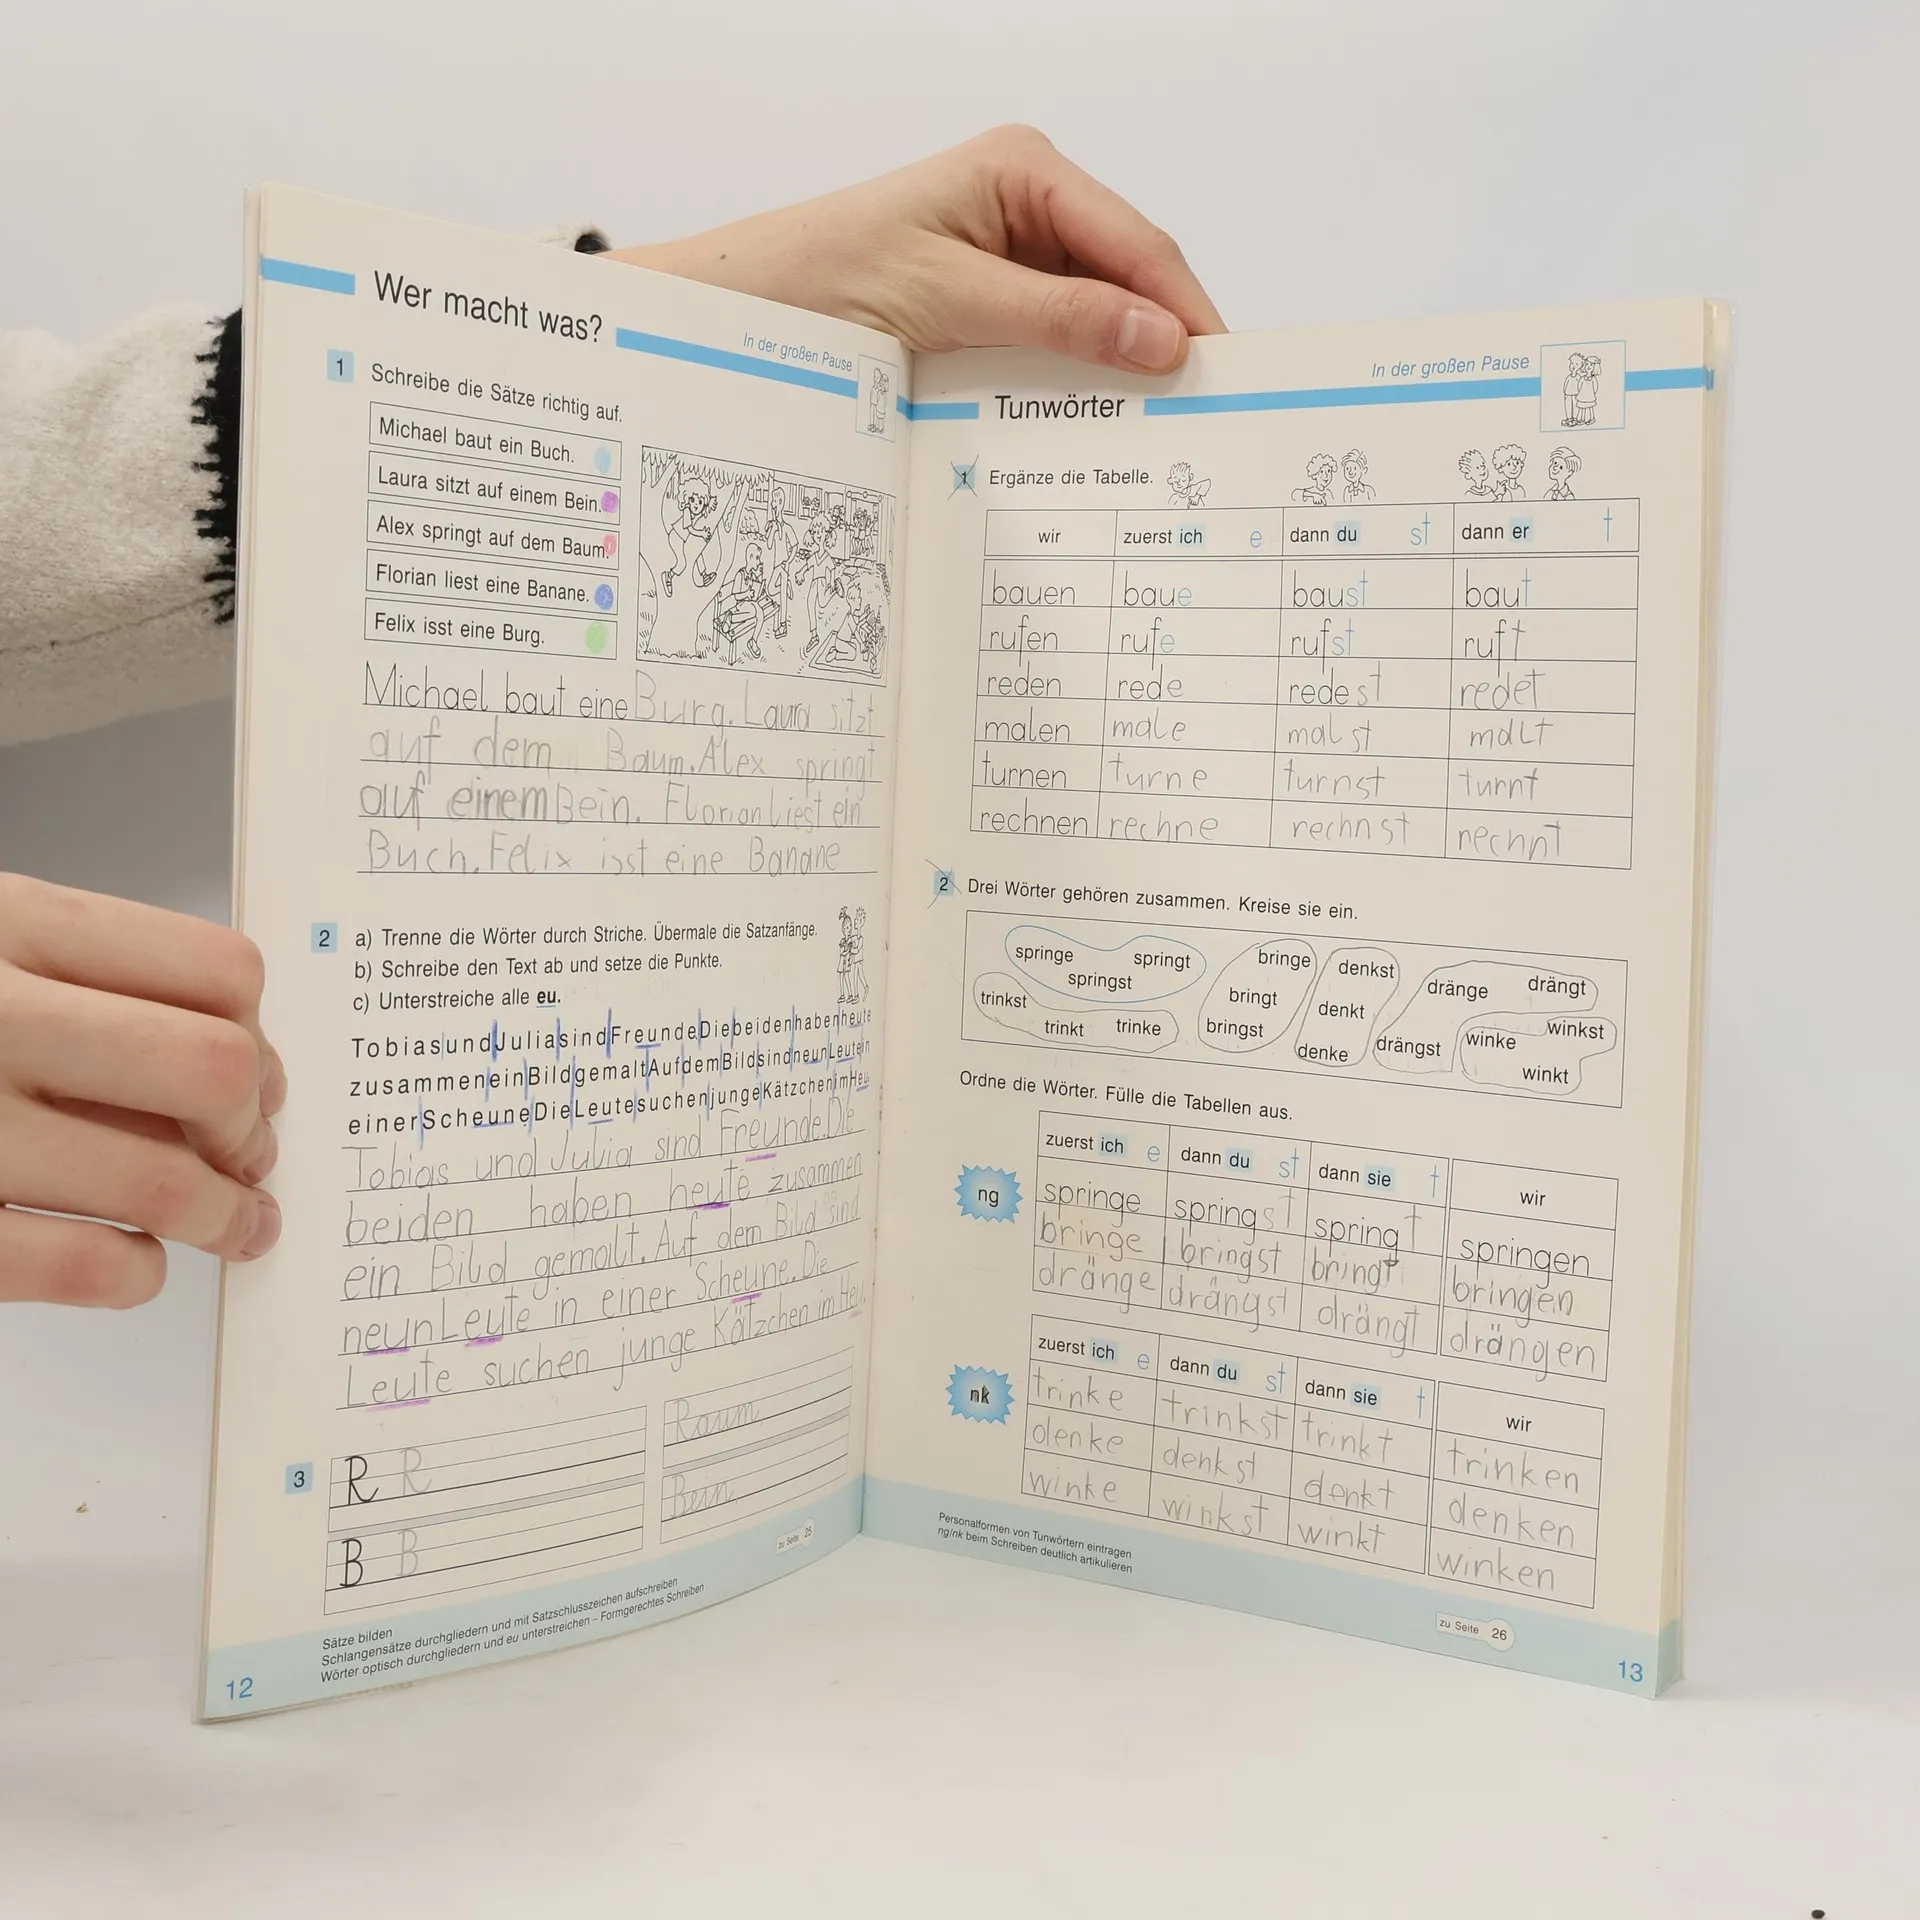 Wer macht was?
In der großen Pause
1 Schreibe die Sätze richtig auf.
Michael baut ein Buch.
Laura sitzt auf einem Bein.
Alex springt auf dem Baum.
Florian liest eine Banane.
Felix isst eine Burg.
Michael baut eine Burg. Laura sitzt
auf dem Baum. Alex springt
auf einem Bein. Florian liest ein
Buch. Felix isst eine Banane
2 a) Trenne die Wörter durch Striche. Übermale die Satzanfänge.
b) Schreibe den Text ab und setze die Punkte.
c) Unterstreiche alle eu.
TobiasundJuliasindFreundeDiebeidenhabenheute
zusammeneinBildgemaltAufdemBildsindneunLeutein
einerScheuneDieLeutesuchenjungeKätzchenimHeu
Tobias und Julia sind Freunde. Die
beiden haben heute zusammen
ein Bild gemalt. Auf dem Bild sind
neun Leute in einer Scheune. Die
Leute suchen junge Kätzchen im Heu.
3 R R
Raum
Bein
B B
zu Seite 25
Sätze bilden
Schlangensätze durchgliedern und mit Satzschlusszeichen aufschreiben
Wörter optisch durchgliedern und eu unterstreichen – Formgerechtes Schreiben
12
In der großen Pause
Tunwörter
1 Ergänze die Tabelle.
wir zuerst ich e dann du st dann er t
bauen baue baust baut
rufen rufe rufst ruft
reden rede redest redet
malen male malst malt
turnen turne turnst turnt
rechnen rechne rechnst rechnt
2 Drei Wörter gehören zusammen. Kreise sie ein.
springe springt springst
trinkst trinkt trinke
bringe bringt bringst
denkst denkt denke
dränge drängt drängst
winke winkst winkt
Ordne die Wörter. Fülle die Tabellen aus.
zuerst ich e dann du st dann sie t wir
ng
springe springst springt springen
bringe bringst bringt bringen
dränge drängst drängt drängen
zuerst ich e dann du st dann sie t wir
nk
trinke trinkst trinkt trinken
denke denkst denkt denken
winke winkst winkt winken
Personalformen von Tunwörtern eintragen
ng/nk beim Schreiben deutlich artikulieren
zu Seite 26
13